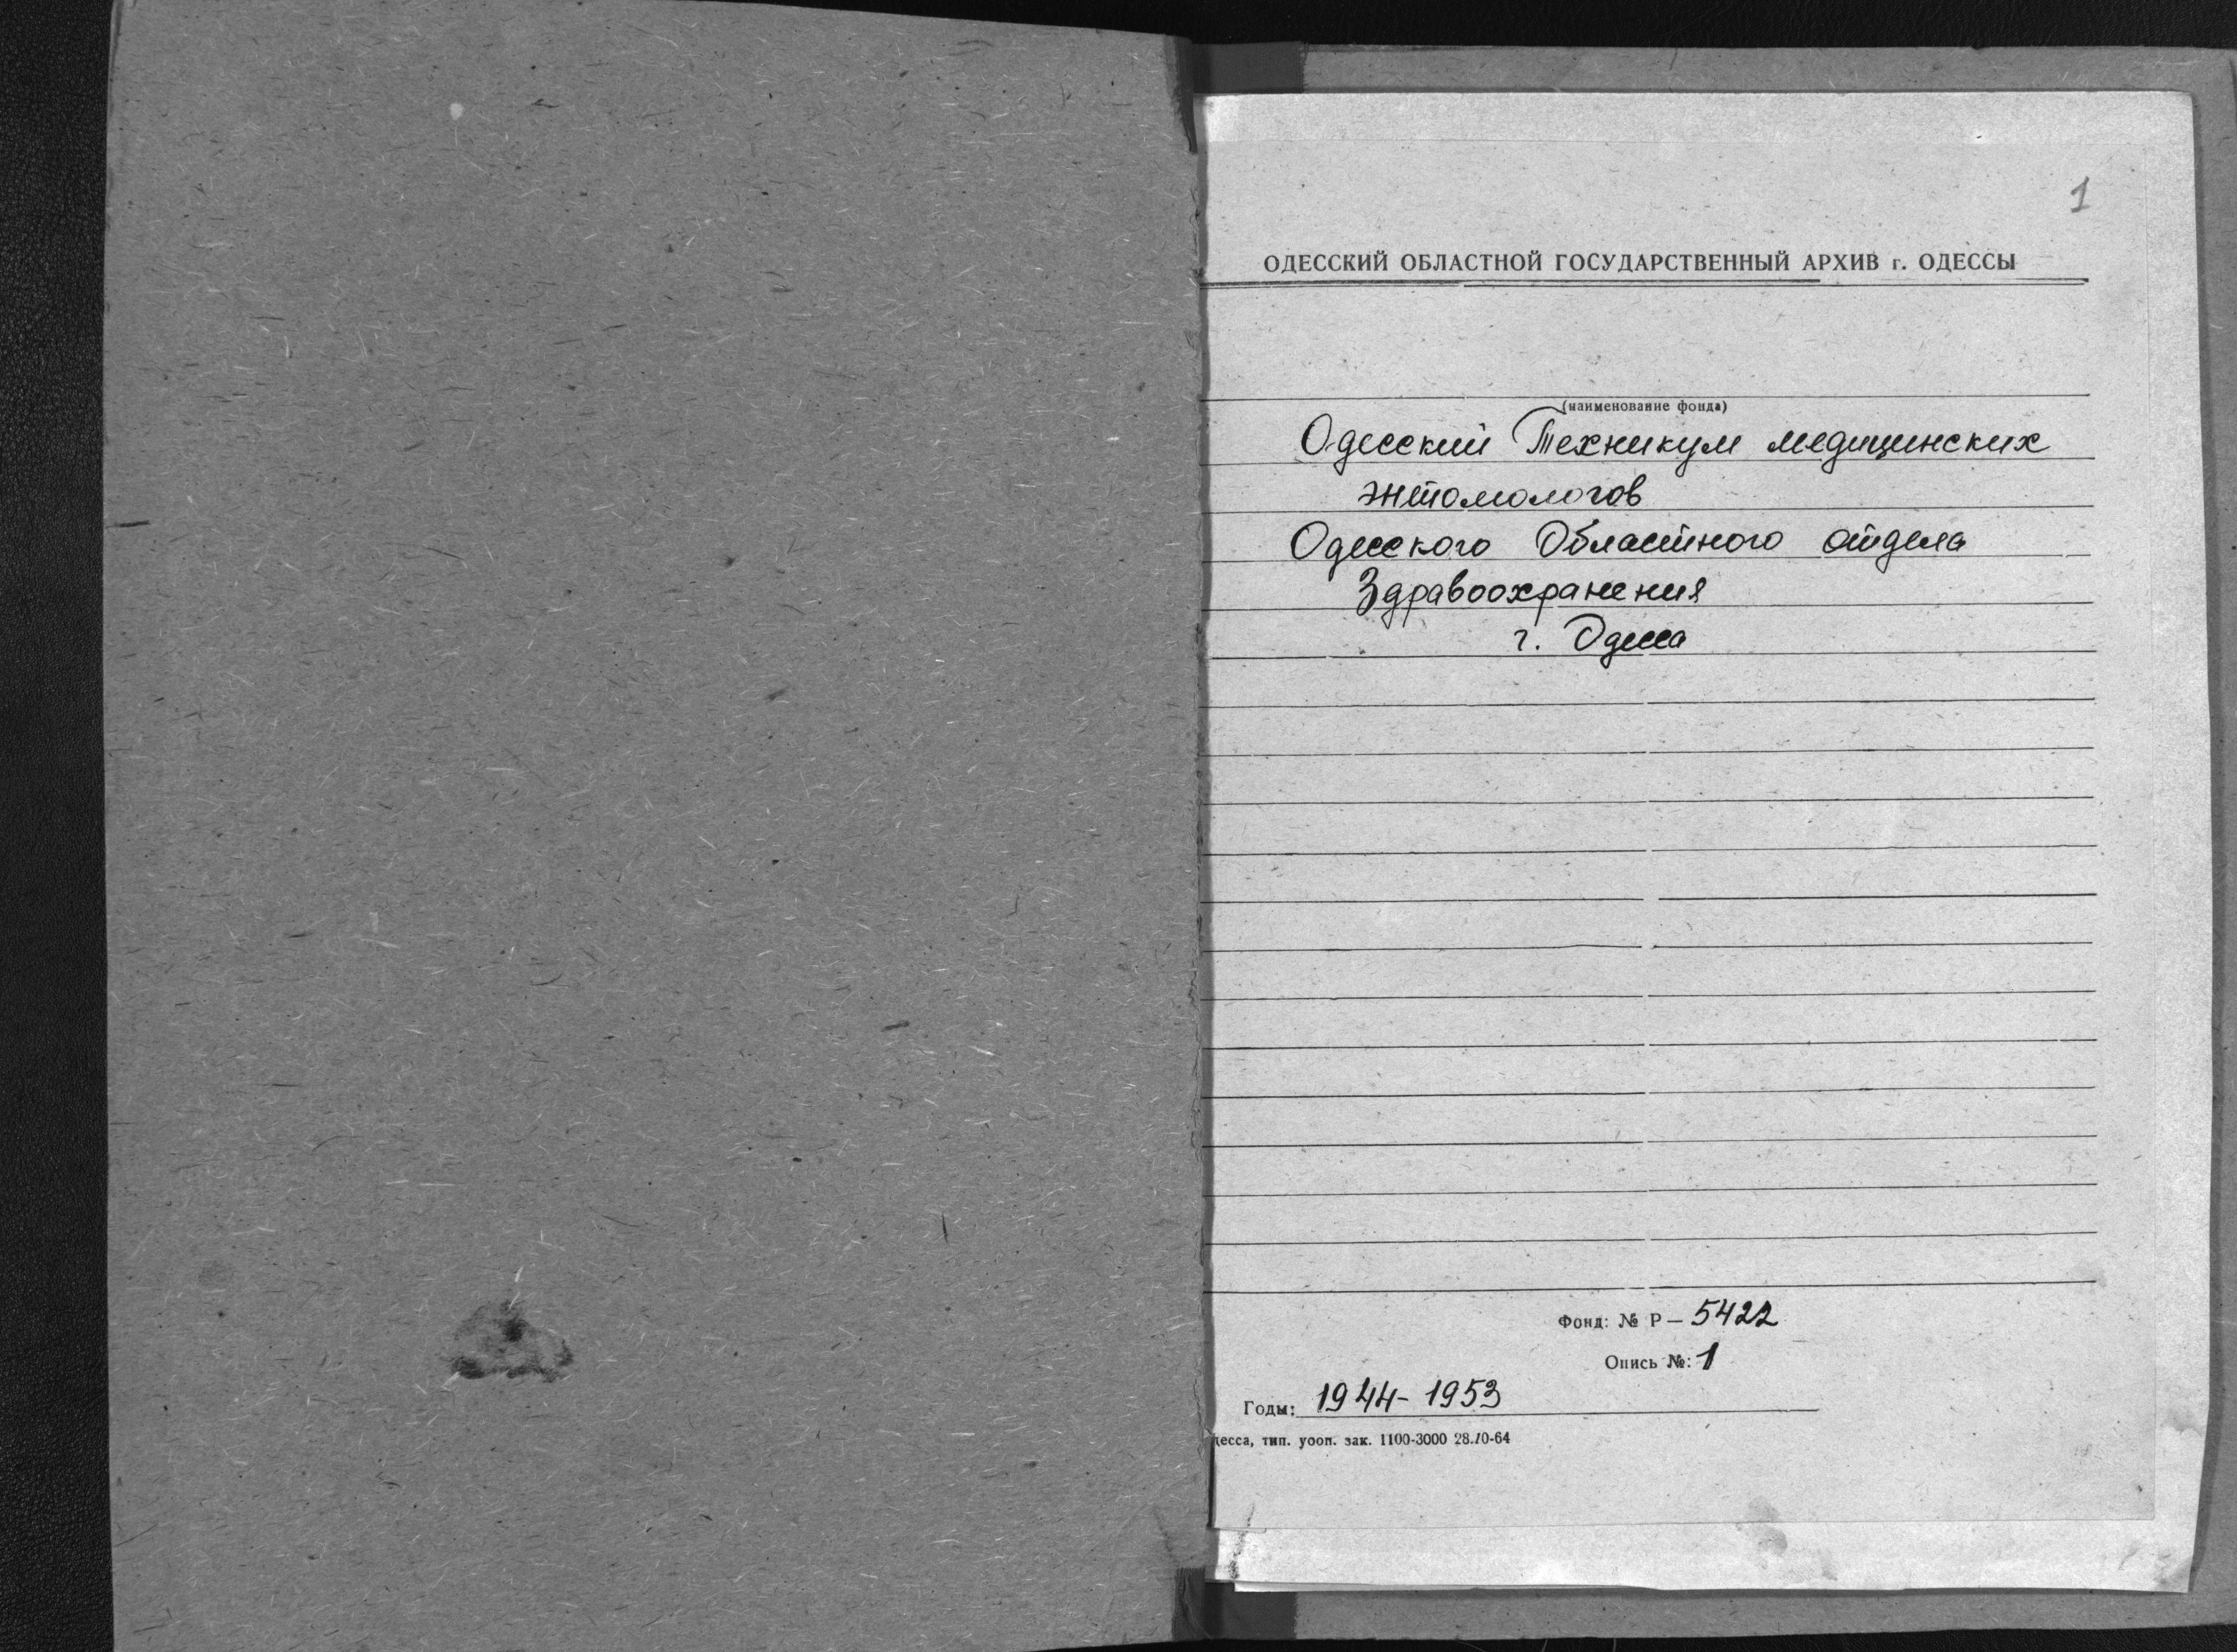 1
ОДЕССКИЙ ОБЛАСТНОЙ ГОСУДАРСТВЕННЫЙ АРХИВ г. ОДЕССЫ
(наименование фонда)
Одесский Техникум медицинских
энтомологов
Одесского Областного отдела
Здравоохранения
г. Одесса
Фонд: № Р — 5422
Опись №: 1
Годы: 1944 - 1953
десса, тип. уооп. зак. 1100-3000 28.10-64